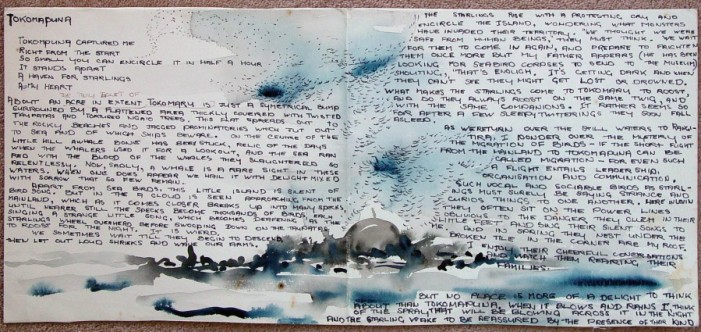 TOKOMAPUNA
TOKOMAPUNA CAPTURED ME
RIGHT FROM THE START
SO SMALL YOU CAN ENCIRCLE IT IN HALF A HOUR
IT STANDS APART
A HAVEN FOR STARLINGS
& MY HEART
ABOUT AN ACRE IN EXTENT TOKOMARY IS JUST A SYMETRICAL BUMP
SURROUNDED BY A FLATTENED AREA THICKLY COVERED WITH TWISTED
TAUHATAS AND TORTURED NGAIO TREES. THIS FLAT SPREADS OUT TO
THE ROCKY BEACHES AND JAGGED PROMITORIES WHICH JUT OUT
TO SEA AND OF WHICH SHIPS BEWARE. ON THE CENTRE OF THE
LITTLE HILL A WHALE BONE HAS BEEN STUCK, RELIC OF THE DAYS
WHEN THE WHALERS USED IT FOR A LOOKOUT, AND THE SEA RAN
RED WITH THE BLOOD OF THE WHALES THEY SLAUGHTERED SO
RELENTLESSLY. NOW, SADLY A WHALE IS A RARE SIGHT IN THESE
WATERS. WHEN ONE DOES APPEAR WE HAIL IT WITH DELIGHT MIXED
WITH SORROW THAT SO FEW REMAIN.
APART FROM SEA BIRDS, THIS LITTLE ISLAND IS SILENT OF
BIRD SONG. BUT THEN A CLOUD IS SEEN APPROACHING FROM THE
MAINLAND, WHICH AS IT COMES CLOSER BREAKS UP INTO MANY SPECKS,
UNTIL NEARER STILL THE SPECKS BECOME THOUSANDS OF BIRDS, EACH
SINGING A STRANGE LITTLE SONG, WHICH BECOMES DEAFENING AS THE
STARLINGS WHEEL OVERHEAD BEFORE SWOOPING DOWN ON THE TAUHATAS
TO ROOST FOR THE NIGHT.
WE SOMETIMES WAIT TILL THEY BEGIN TO DESCEND
THEN LET OUT LOUD SHRIEKS AND WAVE OUR ARMS.
THE STARLINGS RISE WITH A PROTESTING CRY AND
ENCIRCLE THE ISLAND, WONDERING WHAT MONSTERS
HAVE INVADED THEIR TERRITORY. "WE THOUGHT WE WERE
SAFE FROM HUMAN BEINGS," THEY MUST THINK. WE WAIT
FOR THEM TO COME IN AGAIN, AND PREPARE TO FRIGHTEN
THEM ONCE MORE BUT MY FATHER APPEARS (HE HAS BEEN
LOOKING FOR SEABIRD CORPSES TO SEND TO THE MUSEUM)
SHOUTING, "THAT'S ENOUGH, IT'S GETTING DARK AND WHEN
THEY CAN'T SEE THEY MIGHT GET LOST OR DROWNED.
WHAT MAKES THE STARLINGS COME TO TOKOMARY TO ROOST,
AND DO THEY ALWAYS ROOST ON THE SAME TWIG, AND
WITH THE SAME COMPANIONS. IT RATHER SEEMS SO
FOR AFTER A FEW SLEEPY TWITTERINGS THEY SOON FALL
ASLEEP.
AS WE RETURN OVER THE STILL WATERS TO RAKU-
TARA, I PONDER OVER THE MYSTERY OF
THE MIGRATION OF BIRDS - IF THE SHORT FLIGHT
FROM THE MAINLAND TO TOKOMAPUNA CAN BE
CALLED MIGRATION - FOR EVEN SUCH
A FLIGHT ENTAILS LEADERSHIP,
ORGANISATION AND COMMUNICATION.
SUCH VOCAL AND SOCIABLE BIRDS AS STARL-
INGS MUST SURELY BE SAYING STRANGE AND
CURIOUS THINGS TO ONE ANOTHER. HERE
THEY OFTEN SIT ON THE POWER LINES
OBLIVIOUS TO THE DANGER THEY CLUTCH IN THEIR
LITTLE FEET, AND SING THEIR SILENT SONGS TO
ME, AND IN SPRING THEY NEST UNDER THE
BROKEN TILE IN THE CORNER OF MY ROOF.
I ENJOY THEIR CHEERFUL CONVERSATIONS
AND WATCH THEM REARING THEIR
FAMILIES.
BUT NO PLACE IS MORE OF A DELIGHT TO THINK
ABOUT THAN TOKOMAPUNA, WHEN IT BLOWS AND RAINS I THINK
OF THE SPRAY THAT WILL BE BLOWING ACROSS IT IN THE NIGHT
AND THE STARLING WAKE TO BE REASSURED BY THE PRESENCE OF HER KIND